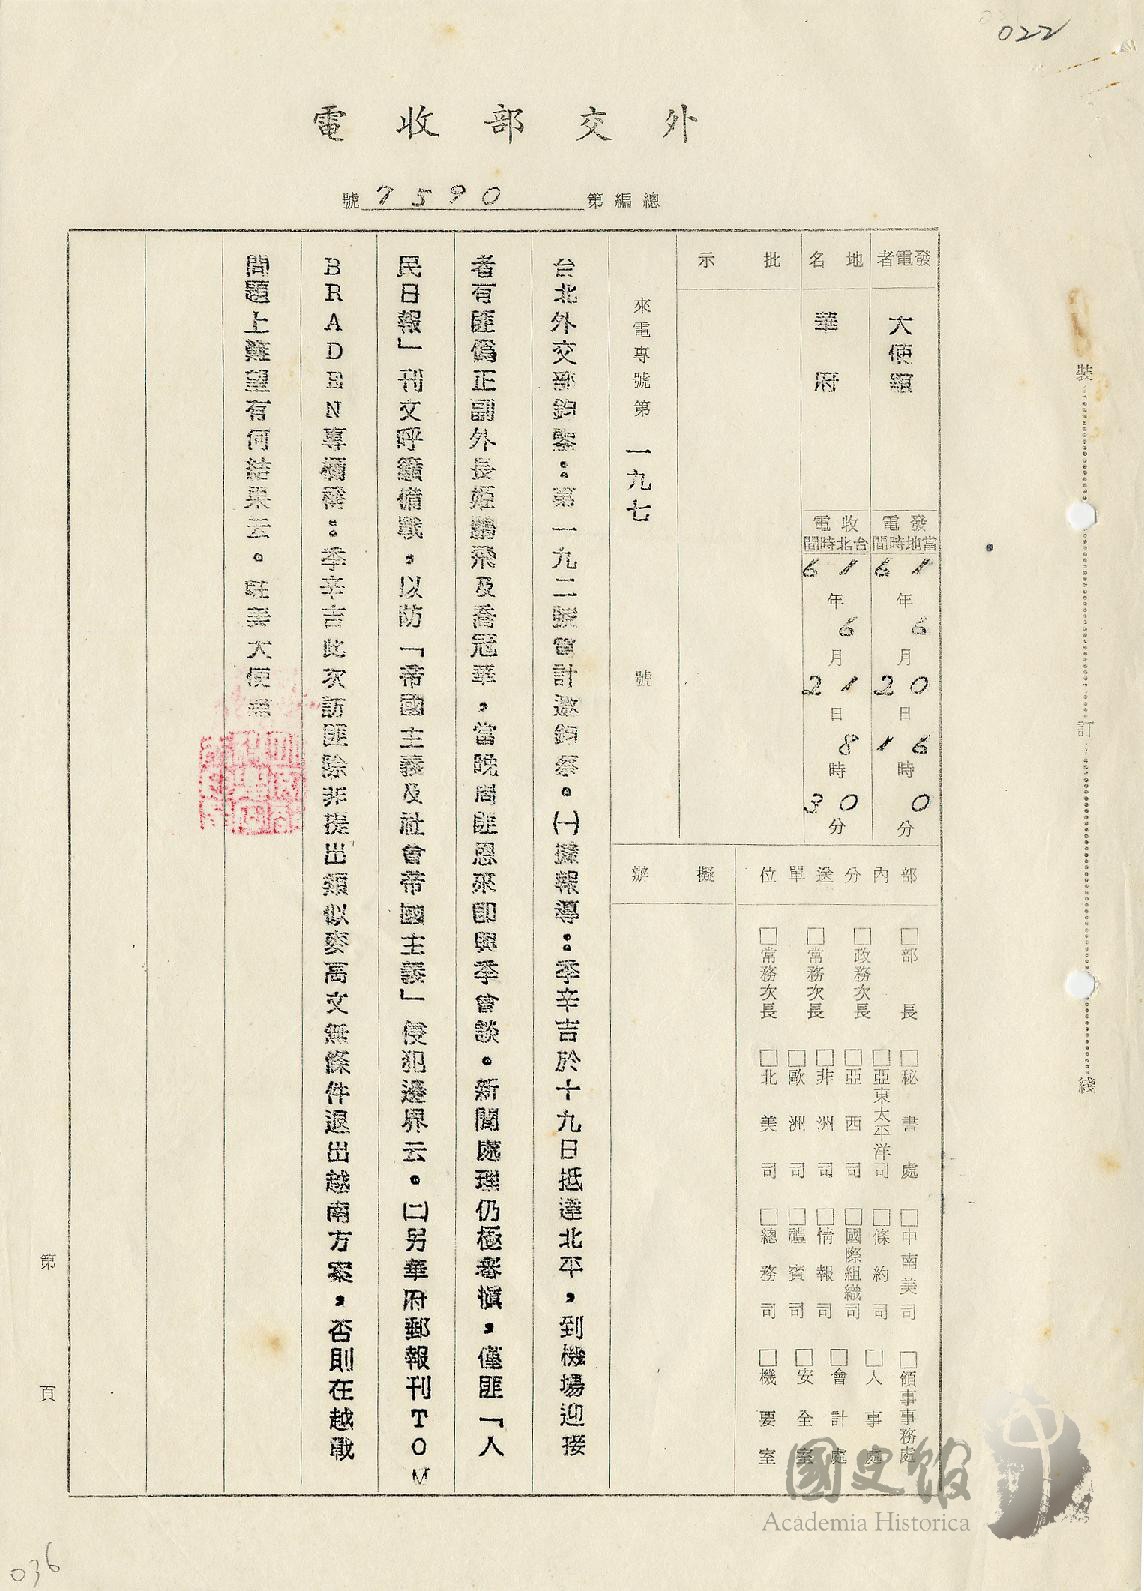 022
外交部收電
總編第7590號
發電者 大使館
地名 華府
批示
發電當地時間 61年6月20日16時0分
收電台北時間 61年6月21日8時30分
來電專號第一九七號
部內分送單位
□部長 □秘書處 □中南美司 □領事事務處
□政務次長 □亞東太平洋司 □條約司 □人事處
□亞西司 □國際組織司 □會計處
□常務次長 □非洲司 □情報司 □安全室
□歐洲司 □禮賓司
□常務次長 □北美司 □總務司 □機要室
擬辦
台北外交部鈞鑒：第一九二號會計邀鈞察。㈠據報導：季辛吉於十九日抵達北平，到機場迎接
者有匪偽正副外長姬鵬飛及喬冠華，當晚周匪恩來即與季會談。新聞處理仍極審慎，僅匪「人
民日報」刊文呼籲備戰，以防「帝國主義及社會帝國主義」侵犯邊界云。㈡另華府郵報刊TOM
BRADEN專欄稱：季辛吉此次訪匪除非提出類似麥高文無條件退出越南方案，否則在越戰
問題上難望有何結果云。駐美大使館
裝訂線
第頁
國史館
Academia Historica
036